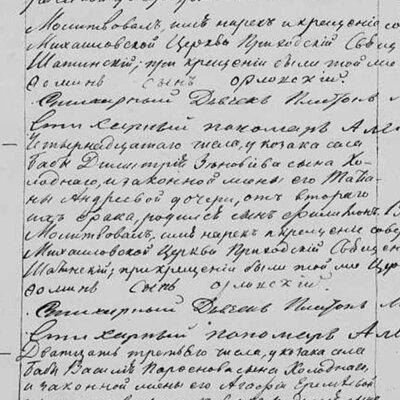 Молитвовалъ, имѣ нарекъ и крещеніе со
Михаиловской Церкви Приходскій Свѣщ
Шатинскій, при крещеніи были той же
Фоминъ Сынъ Орловскій.
Стихарный Дьячекъ Платонъ
Стихарный пономарь Але
Четырнадцатаго числа, у козака села
бабъ Димитрія Зѣновіева сына Хо-
лоднаго, и законной жены его Татiа-
ны Андреевой дочери, отъ втораго
ихъ брака, родился сынъ Филимонъ.
Молитвовалъ, имѣ нарекъ и крещеніе сове
Михаиловской Церкви Приходскій Свѣщен
Шатинскій, при крещеніи были той же Цер
Фоминъ Сынъ Орловскій.
Стихарный Дьячекъ Платонъ
Стихарный пономарь Але
Двадцать третьяго числа, у козака села
бабъ Василія Парѳенова сына Холоднаг
и законной жены его Агафіи